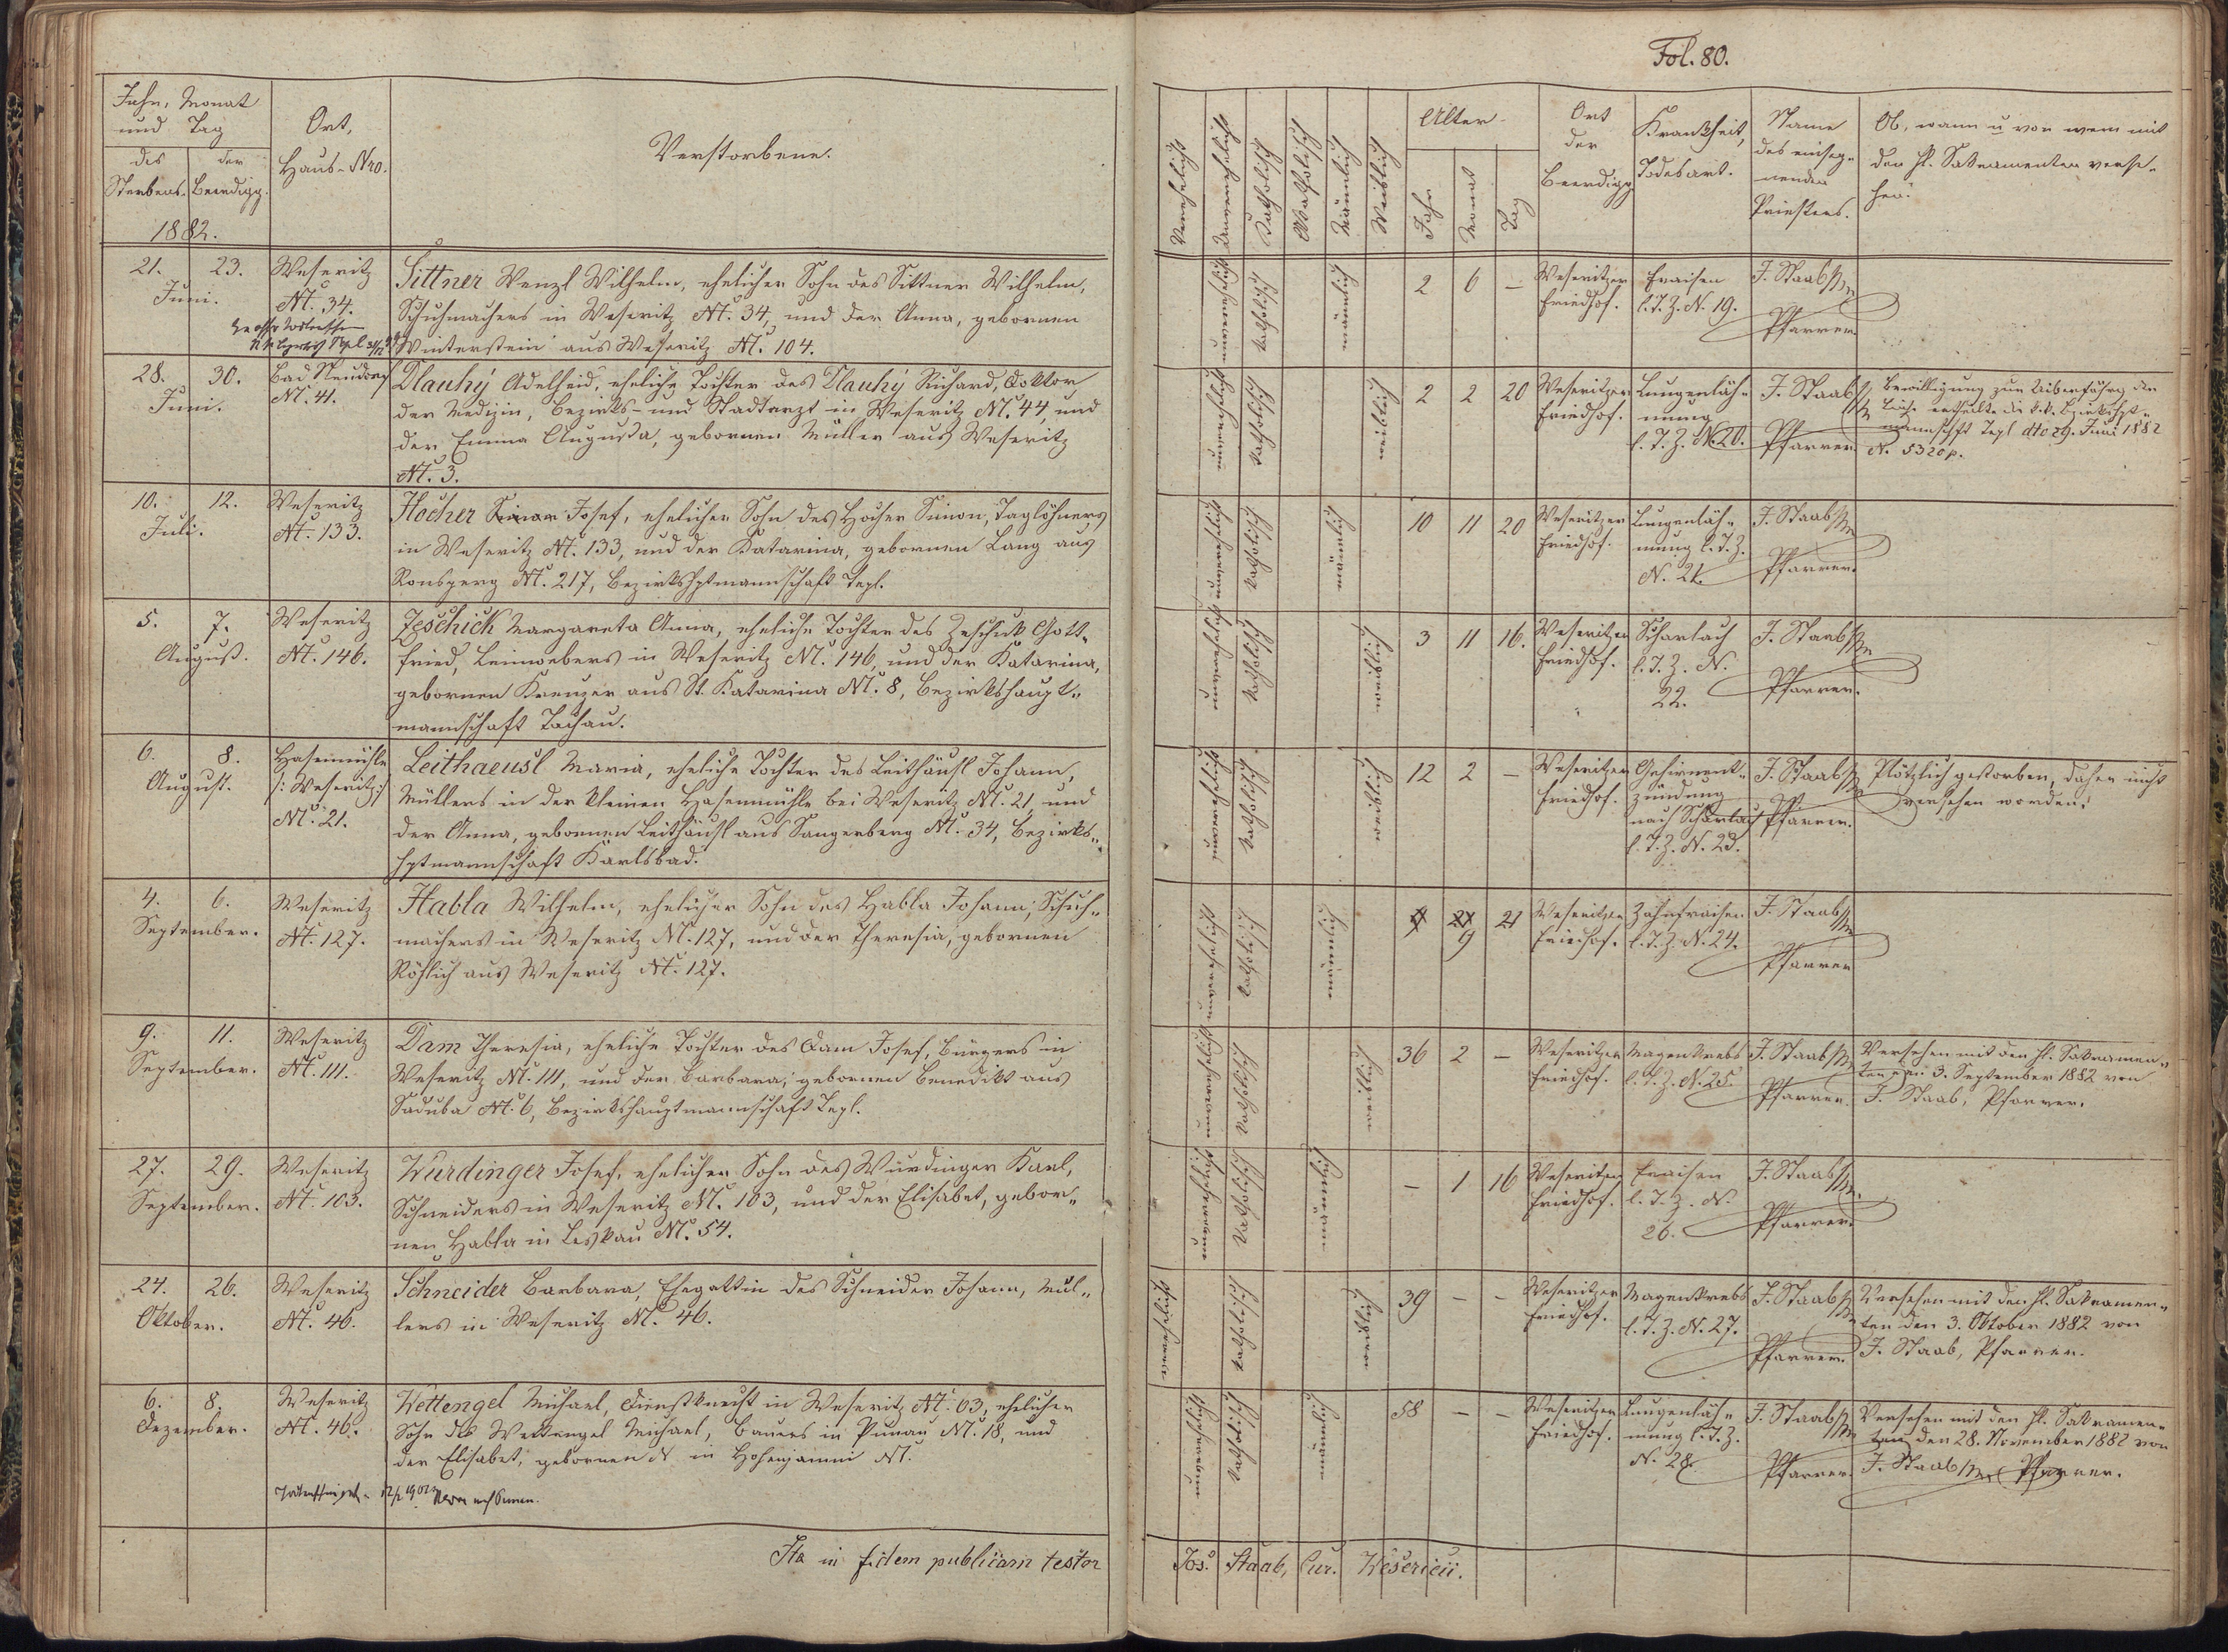 Fol. 80.
Jahr, Monat
und Tag
des
Sterbens.
der
Beerdigg.
1882.
Ort,
Haus-Nro.
Verstorbene.
Verehelicht
Unverehelicht
Katholisch
Akatholisch
Männlich
Weiblich
Alter
Jahr
Monat
Tag
Ort
der
Beerdigg
Krankheit,
Todesart.
Name
des einseg-
nenden
Priesters.
Ob, wann u von wem mit
den hl. Sakramenten verse-
hen.
21. 23.
Juni.
Weseritz
N. 34.
Sittner Wenzl Wilhelm, ehelicher Sohn des Sittner Wilhelm,
Schuhmachers in Weseritz N. 34, und der Anna, gebornen
Winterstein aus Weseritz N. 104.
unverehelicht
katholisch
männlich
2 6 –
Weseritzer
Friedhof.
Fraisen
l. T. Z. N. 19.
J. Staab
Pfarrer
28. 30.
Juni.
Bad Neudorf
N. 41.
Dlauhy Adelheid, eheliche Tochter des Dlauhy Richard, Doktor
der Medizin, Bezirks- und Stadtarzt in Weseritz N. 44, und
der Emma Augusta, gebornen Müller aus Weseritz
N. 3.
unverehelicht
katholisch
weiblich
2 2 20
Weseritzer
Friedhof.
Lungenläh-
mung
l. T. Z. N. 20.
J. Staab
Pfarrer
Bewilligung zur Überführg der
Leiche ertheilte die k.k. Bezirkshpt-
mannschaft Tepl dto 29. Juni 1882
N. 5320p.
10. 12.
Juli.
Weseritz
N. 133.
Hocher Simon Josef, ehelicher Sohn des Hocher Simon, Taglöhners
in Weseritz N. 133, und der Katarina, gebornen Lang aus
Ronsperg N. 217, Bezirkshptmannschaft Tepl.
unverehelicht
katholisch
männlich
10 11 20
Weseritzer
Friedhof.
Lungenläh-
mung l. T. Z.
N. 21.
J. Staab
Pfarrer.
5. 7.
August.
Weseritz
N. 146.
Zeschick Margareta Anna, eheliche Tochter des Zeschick Gott-
fried, Leinwebers in Weseritz N. 146, und der Katarina,
gebornen Kreuzer aus St. Katarina N. 8, Bezirkshaupt-
mannschaft Tachau.
unverehelicht
katholisch
weiblich
3 11 16.
Weseritzer
Friedhof.
Scharlach
l. T. Z. N.
22.
J. Staab
Pfarrer.
6. 8.
August.
Hasenmühle
/: Weseritz :/
N. 21.
Leithaeusl Maria, eheliche Tochter des Leithäusl Johann,
Müllers in der kleinen Hasenmühle bei Weseritz N. 21, und
der Anna, gebornen Leithäusl aus Sangerberg N. 34, Bezirks-
hptmannschaft Karlsbad.
unverehelicht
katholisch
weiblich
12 2 –
Weseritzer
Friedhof.
Gehirnent-
zündung
nach Scharlach
l. T. Z. N. 23.
J. Staab
Pfarrer.
Plötzlich gestorben, daher nicht
versehen worden.
4. 6.
September.
Weseritz
N. 127.
Habla Wilhelm, ehelicher Sohn des Habla Johann, Schuh-
machers in Weseritz N. 127, und der Theresia, gebornen
Röhlich aus Weseritz N. 127.
unverehelicht
katholisch
männlich
9 21
Weseritzer
Friedhof.
Zahnfraisen
l. T. Z. N. 24.
J. Staab
Pfarrer
9. 11.
September.
Weseritz
N. 111.
Dam Theresia, eheliche Tochter des Dam Josef, Bürgers in
Weseritz N. 111, und der Barbara, gebornen Benedikt aus
Saduba N. 6, Bezirkshauptmannschaft Tepl.
unverehelicht
katholisch
weiblich
36 2 –
Weseritzer
Friedhof.
Magenkrebs
l. T. Z. N. 25.
J. Staab
Pfarrer.
Versehen mit den hl. Sakramen-
ten den 3. September 1882 von
J. Staab, Pfarrer.
27. 29.
September.
Weseritz
N. 103.
Wurdinger Josef, ehelicher Sohn des Wurdinger Karl,
Schneiders in Weseritz N. 103, und der Elisabet, gebor-
nen Habla in Leskau N. 54.
unverehelicht
katholisch
männlich
– 1 16
Weseritzer
Friedhof.
Fraisen
l. T. Z. N.
26.
J. Staab
Pfarrer.
24. 26.
Oktober.
Weseritz
N. 46.
Schneider Barbara, Ehegattin des Schneider Johann, Mül-
lers in Weseritz N. 46.
verehelicht
katholisch
weiblich
39 – –
Weseritzer
Friedhof.
Magenkrebs
l. T. Z. N. 27.
J. Staab
Pfarrer.
Versehen mit den hl. Sakramen-
ten den 3. Oktober 1882 von
J. Staab, Pfarrer.
6. 8.
Dezember.
Weseritz
N. 46.
Wettengel Michael, Dienstknecht in Weseritz N. 63, ehelicher
Sohn des Wettengel Michael, Bauers in Punau N. 18, und
der Elisabet, gebornen N in Hohenjamni N.
unverehelicht
katholisch
männlich
58 – –
Weseritzer
Friedhof.
Lungenläh-
mung l. T. Z.
N. 28.
J. Staab
Pfarrer.
Versehen mit den hl. Sakramen-
ten den 28. November 1882 von
J. Staab Pfarrer.
Ita in fidem publicam testor
Jos. Staab, Cur. Wesericii.